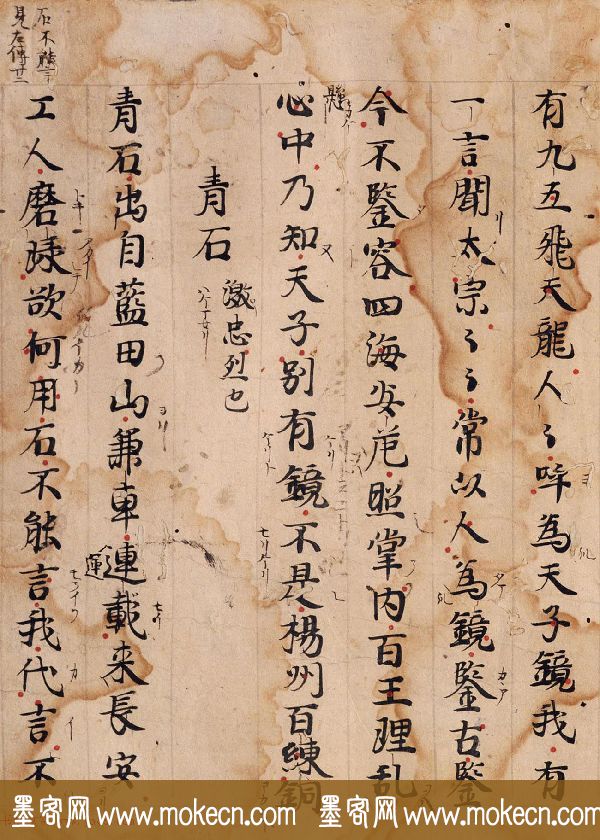 有九五飛天龍人〻呼為天子鏡我有
一言聞太宗〻〻常以人為鏡鑒古鑒
今不鑒容四海安危照掌内百王理乱
懸
心中乃知天子别有鏡不是楊州百練銅
青石 激忠烈也
青石出自藍田山兼車連載来長安
運
工人磨琢欲何用石不能言我代言不
石不能言
見左傳廿三
墨客网 www.mokecn.com 墨客网 www.mokecn.com